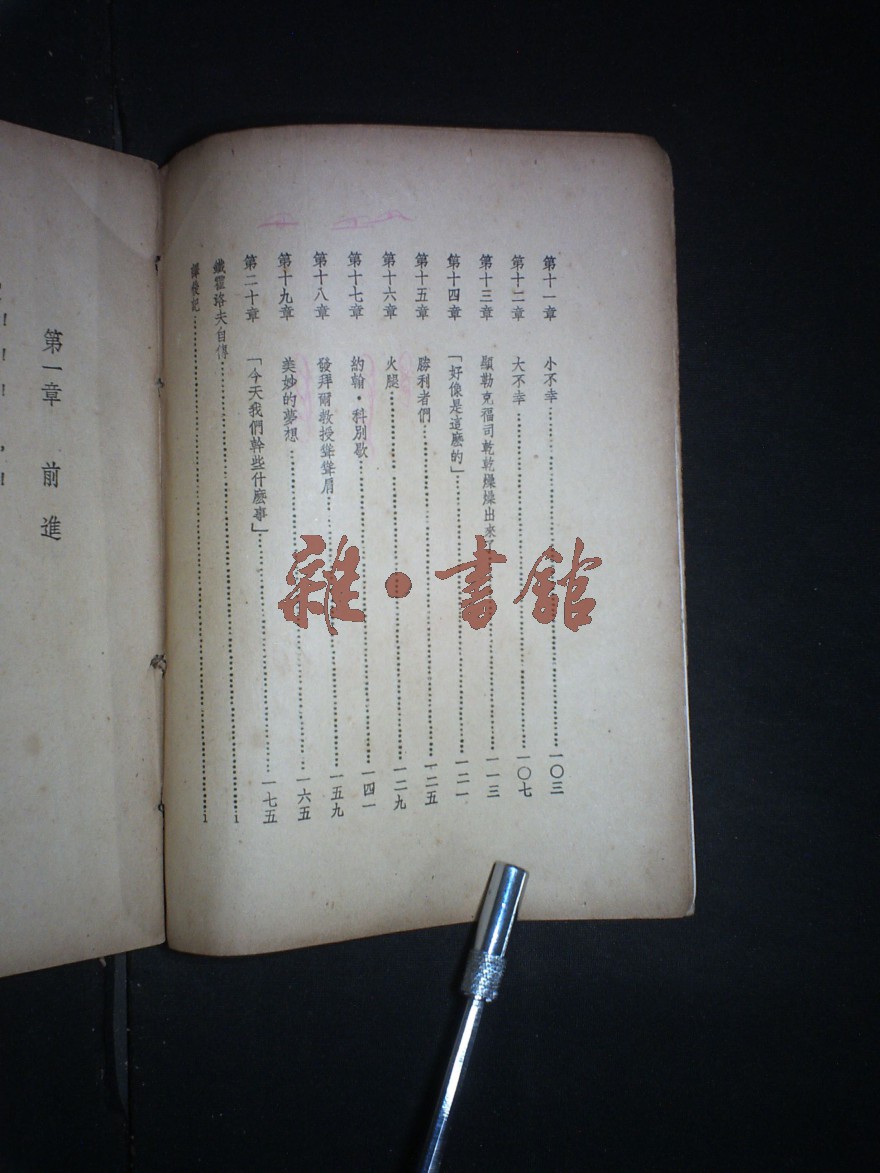 第十一章 小不幸 一〇三
第十二章 大不幸 一〇七
第十三章 顯勒克福司乾乾燥燥出來 一一三
第十四章 「好像是這麽的」 一二一
第十五章 勝利者們 一二五
第十六章 火腿 一二九
第十七章 約翰·科別歇 一四一
第十八章 發拜爾教授聳聳肩 一五九
第十九章 美妙的夢想 一六五
第二十章 「今天我們幹些什麽事」 一七五
鐵霍珞夫自傳 i
譯後記 i
第一章 前進
雜·書館